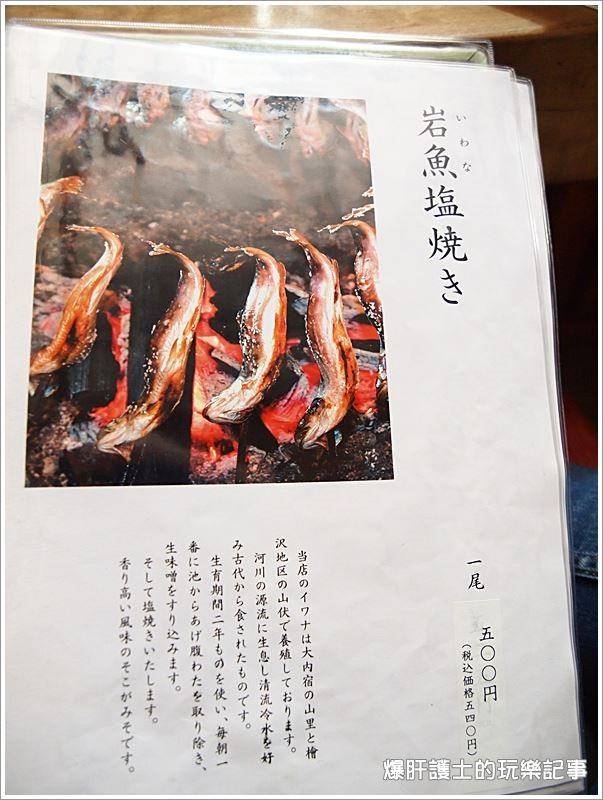 岩魚塩焼き
いわな
一尾
五〇〇円
(税込価格五四〇円)
当店のイワナは大内宿の山里と檜
沢地区の山伏で養殖しております。
河川の源流に生息し清流冷水を好
み古代から食されたものです。
生育期間二年ものを使い、毎朝一
番に池からあげ腹わたを取り除き、
生味噌をすり込みます。
そして塩焼きいたします。
香り高い風味のそこがみそです。
爆肝護士的玩樂記事